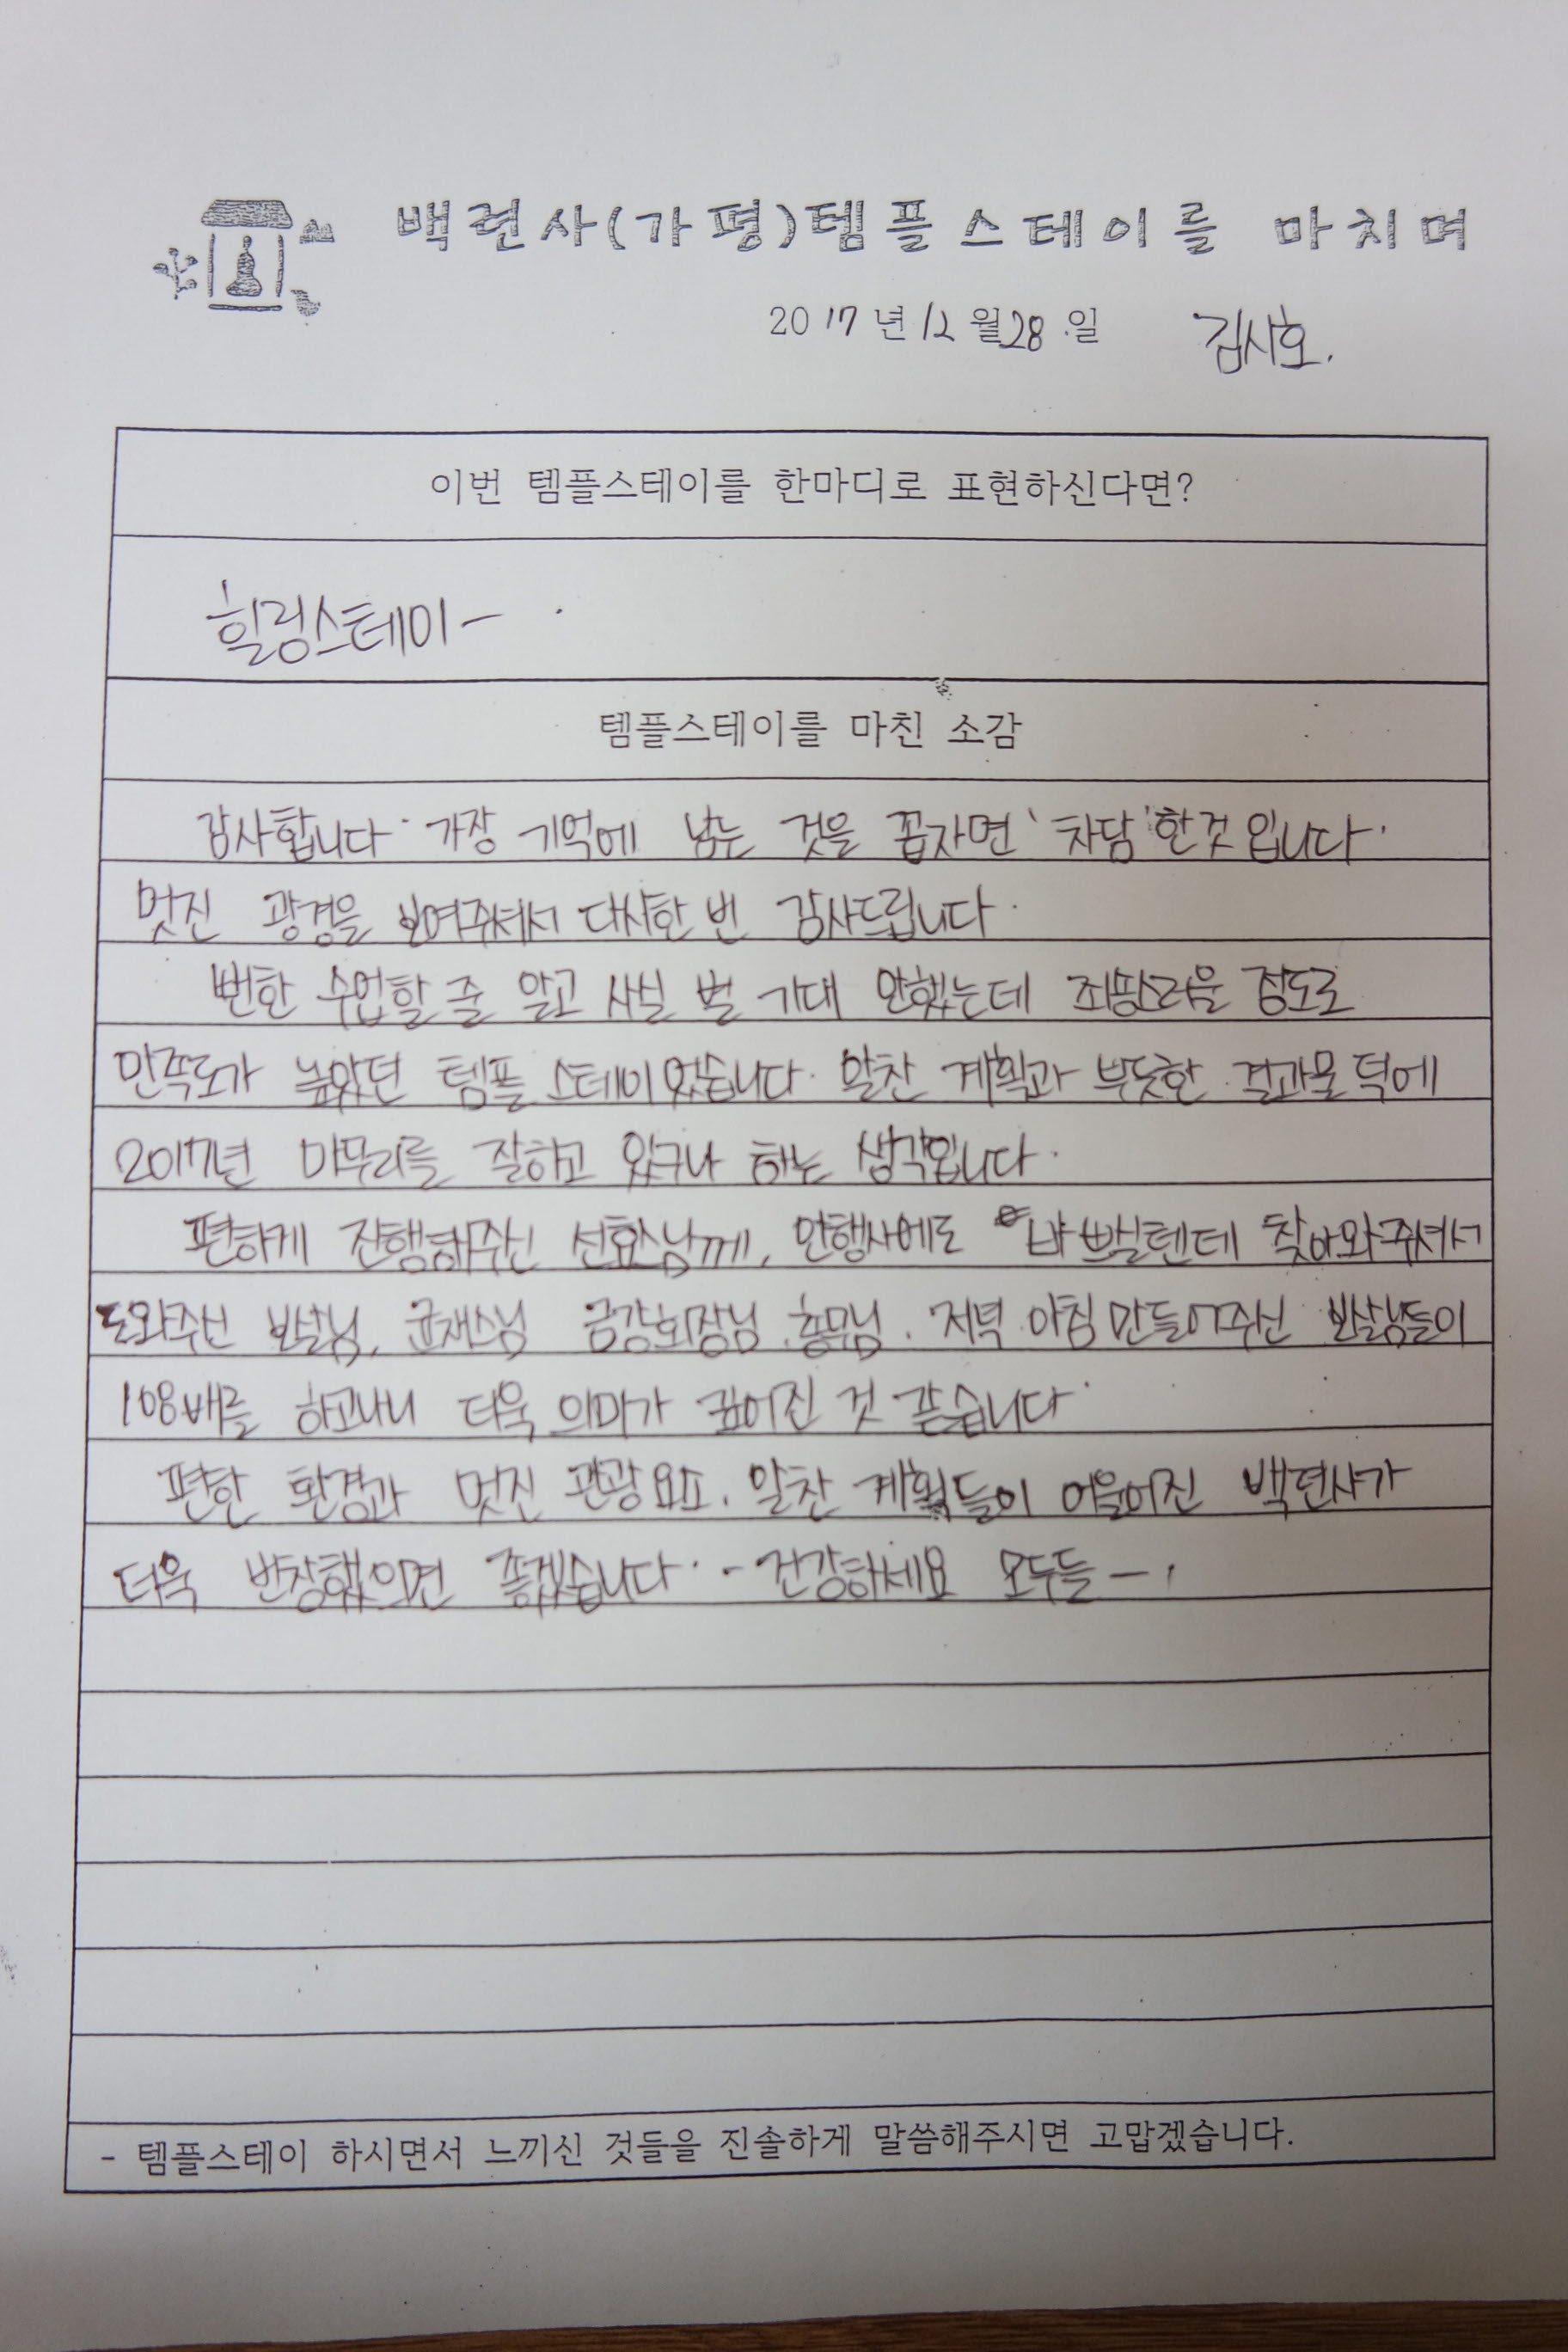 백련사(가평)템플스테이를 마치며
2017년 12월 28일 김시호.
이번 템플스테이를 한마디로 표현하신다면?
힐링스테이 -
템플스테이를 마친 소감
감사합니다. 가장 기억에 남는 것을 꼽자면 '차담'한것 입니다.
멋진 광경을 보여주셔서 다시한 번 감사드립니다.
뻔한 수업할 줄 알고 사실 별 기대 안했는데 죄송스러울 정도로
만족도가 높았던 템플 스테이었습니다. 알찬 계획과 뿌듯한 결과물 덕에
2017년 마무리를 잘하고 있구나 하는 생각입니다.
편하게 진행해주신 선효스님께, 안행사에도 바쁘실텐데 찾아와주셔서
도와주신 보살님, 균재스님 금강회장님 총무님. 저녁 아침 만들어주신 보살님들이
108배를 하고나니 더욱 의미가 깊어진 것 같습니다.
편한 환경과 멋진 관광요소. 알찬 계획들이 어울어진 백련사가
더욱 번창했으면 좋겠습니다. - 건강하세요 모두들 - .
- 템플스테이 하시면서 느끼신 것들을 진솔하게 말씀해주시면 고맙겠습니다.